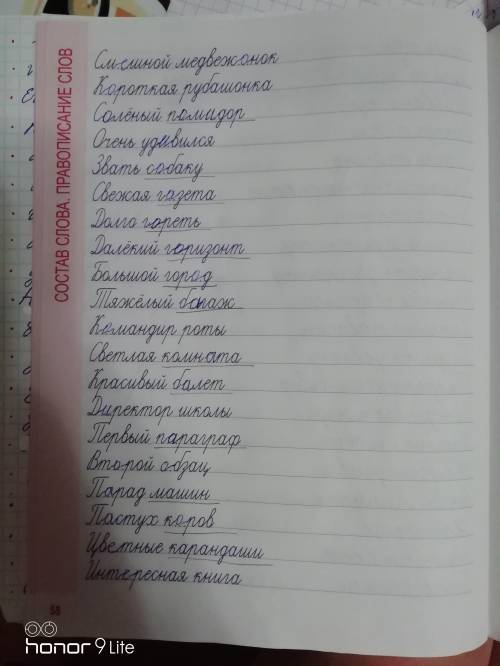 СОСТАВ СЛОВА. ПРАВОПИСАНИЕ СЛОВ
Смешной медвежонок
Короткая рубашонка
Солёный помидор
Очень удивился
Звать собаку
Свежая газета
Долго гореть
Далёкий горизонт
Большой город
Тяжёлый багаж
Командир роты
Светлая комната
Красивый балет
Директор школы
Первый параграф
Второй абзац
Парад машин
Пастух коров
Цветные карандаши
Интересная книга
58
HONOR 9 Lite